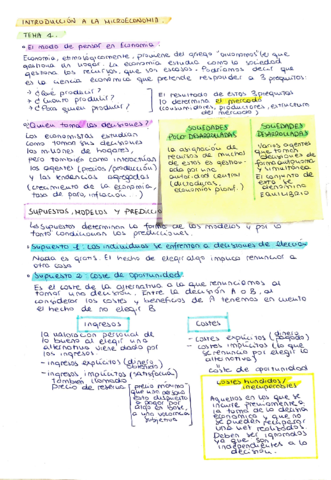 INTRODUCCIÓN A LA MICROECONOMÍA
TEMA 1.
• El modo de pensar en Economía
Economía, etimológicamente, proviene del griego "oikonomos" (el que
gestiona un hogar). La economía estudia como la sociedad
gestiona los recursos, que son escasos. Podríamos decir que
es la ciencia económica que pretende responder a 3 preguntas:
→ ¿Qué producir?
→ ¿Cuánto producir?
→ ¿Para quién producir?
El resultado de estas 3 preguntas
lo determina el mercado
(consumidores, productores, estructura
del mercado)
• ¿Quién toma las decisiones?
Los economistas estudian
como toman sus decisiones
los millones de hogares,
pero también como interactúan
los agentes (precios/producción)
y las tendencias agregadas
(crecimiento de la economía,
tasa de paro, inflación)
SOCIEDADES
POCO DESARROLLADAS
la asignación de
recursos de muchas
de estas es gestionada
por una
autoridad central
(dictaduras,
economías planif.)
SOCIEDADES
DESARROLLADAS
Varios agentes
que toman
decisiones de
forma autónoma
y simultánea.
El conjunto de
esto se
denomina
EQUILIBRIO
SUPUESTOS, MODELOS Y PREDICCIONES
Los supuestos determinan la forma de los modelos y por lo
tanto condicionan las predicciones.
• Supuesto 1: Los individuos se enfrentan a decisiones de elección
Nada es gratis. El hecho de elegir algo implica renunciar a
otra cosa
• Supuesto 2: Coste de oportunidad
Es el coste de la alternativa a la que renunciamos al
tomar una decisión. Entre la decisión A o B, al
considerar los costes y beneficios de A tenemos en cuenta
el hecho de no elegir B
ingresos
la valoración personal de
lo bueno al elegir una
alternativa viene dado por
los ingresos.
- ingresos explícitos (dinero
obtenido)
- ingresos implícitos (satisfacción)
También llamado
precio de reserva
precio máximo
que una persona
está dispuesta
a pagar por
algo en base
a una valoración
subjetiva
costes
- costes explícitos (dinero
pagado)
- costes implícitos (lo que
se renuncia por elegir la
alternativa)
coste de oportunidad
costes hundidos/
irrecuperables
Aquellos en los que se
incurre previamente a
la toma de la decisión
económica y que no
se pueden recuperar
una vez realizados.
Deben ser ignorados
ya que son
independientes a la
decisión.